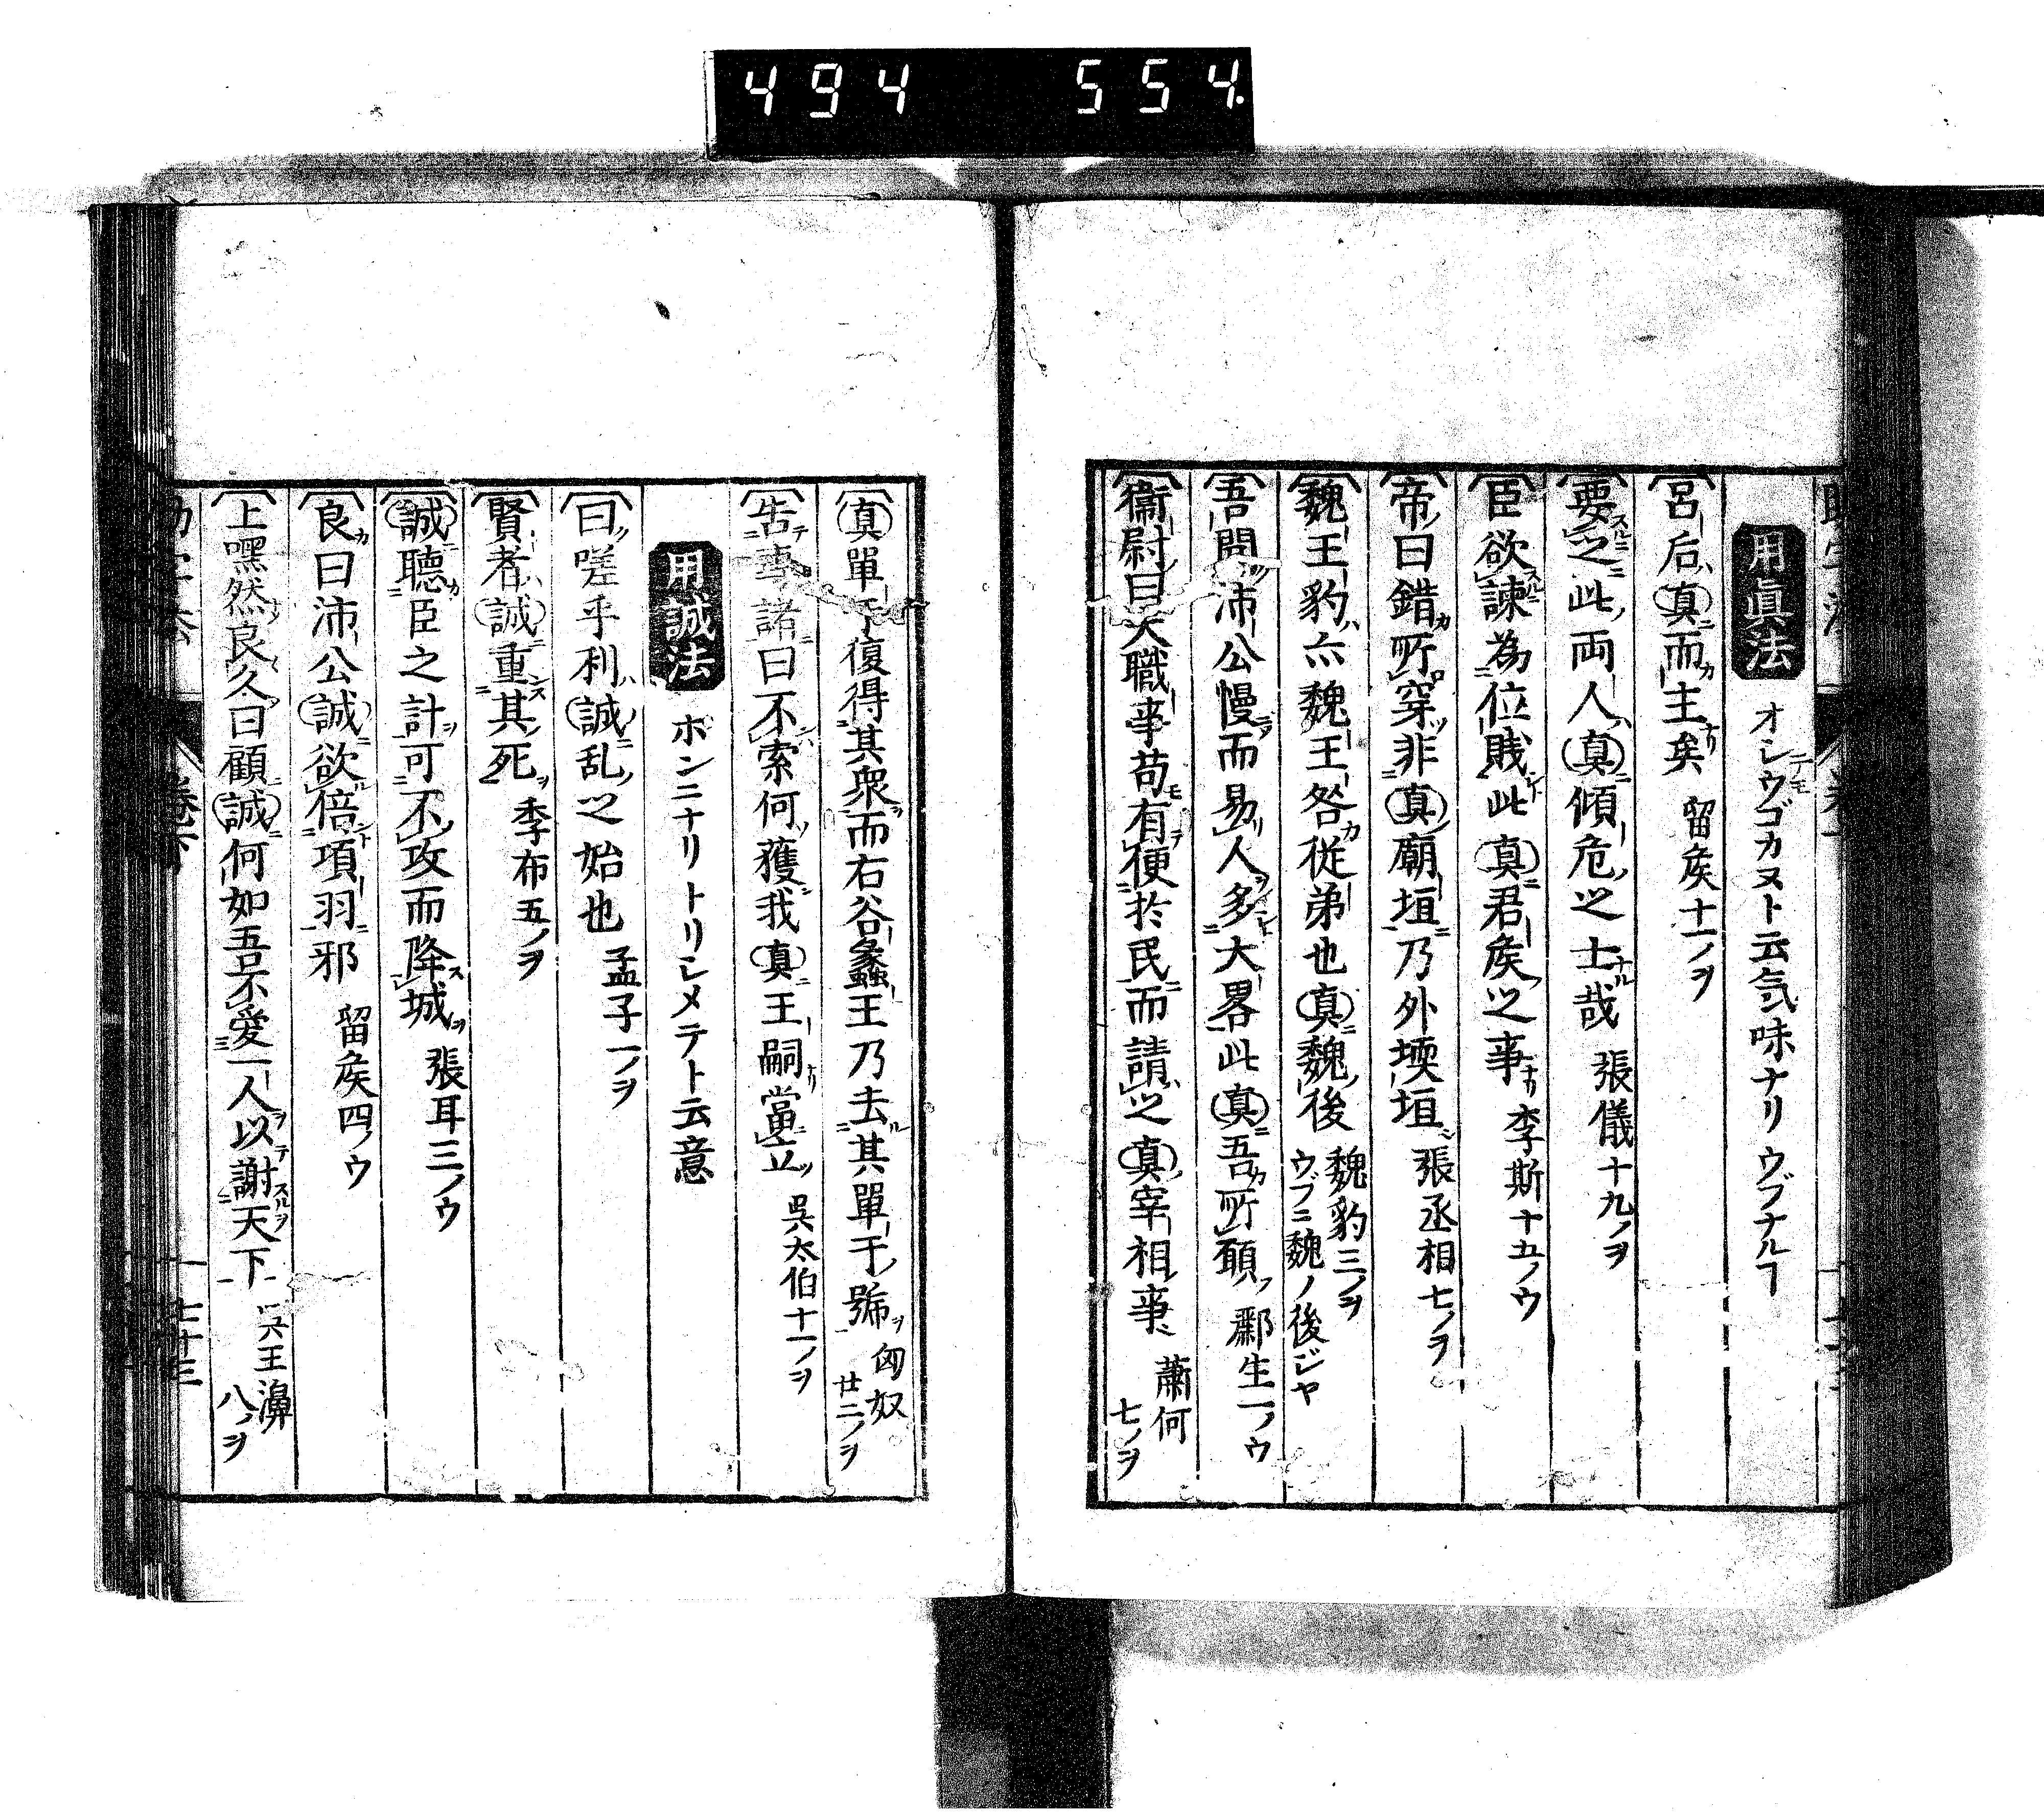 494 554.
用眞法 オシウゴカヌト云気味ナリ ウブナルヿ
呂后真而主矣 留矦十一ノヲ
要之此両人真傾危之士哉 張儀十九ノヲ
臣欲諫為位賎此真君矦之事 李斯十五ノウ
帝曰錯所穿非真廟垣乃外堧垣 張丞相七ノヲ
魏王豹亦魏王咎従弟也真魏後 魏豹三ノヲ
ウブニ魏ノ後ジヤ
吾聞沛公慢而易人多大畧此真吾所願 酈生一ノウ
衞尉曰夫職事苟有便於民而請之真宰相事 蕭何
七ノヲ
真單于復得其衆而右谷蠡王乃去其單于號 匈奴
廿二ノヲ
告專諸曰不索何獲我真王嗣當立 吳太伯十一ノヲ
用誠法 ホンニナリトリシメテト云意
曰嗟乎利誠乱之始也 孟子一ノヲ
賢者誠重其死 季布五ノヲ
誠聴臣之計可不攻而降城 張耳三ノウ
良曰沛公誠欲倍項羽邪 留矦四ノウ
上嘿然良久曰顧誠何如吾不愛一人以謝天下 吳王濞
八ノヲ
七十三